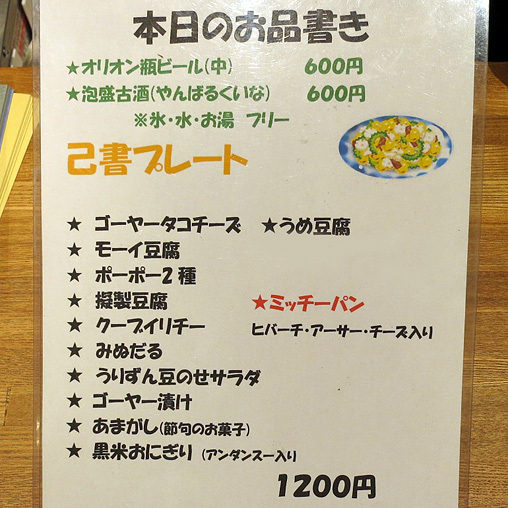 本日のお品書き
★オリオン瓶ビール(中) 600円
★泡盛古酒(やんばるくいな) 600円
※氷・水・お湯 フリー
己書プレート
★ ゴーヤータコチーズ ★うめ豆腐
★ モーイ豆腐
★ ポーポー2種
★ 擬製豆腐 ★ミッチーパン
★ クーブイリチー ヒバーチ・アーサー・チーズ入り
★ みぬだる
★ うりずん豆のせサラダ
★ ゴーヤー漬け
★ あまがし(節句のお菓子)
★ 黒米おにぎり (アンダンスー入り
1200円